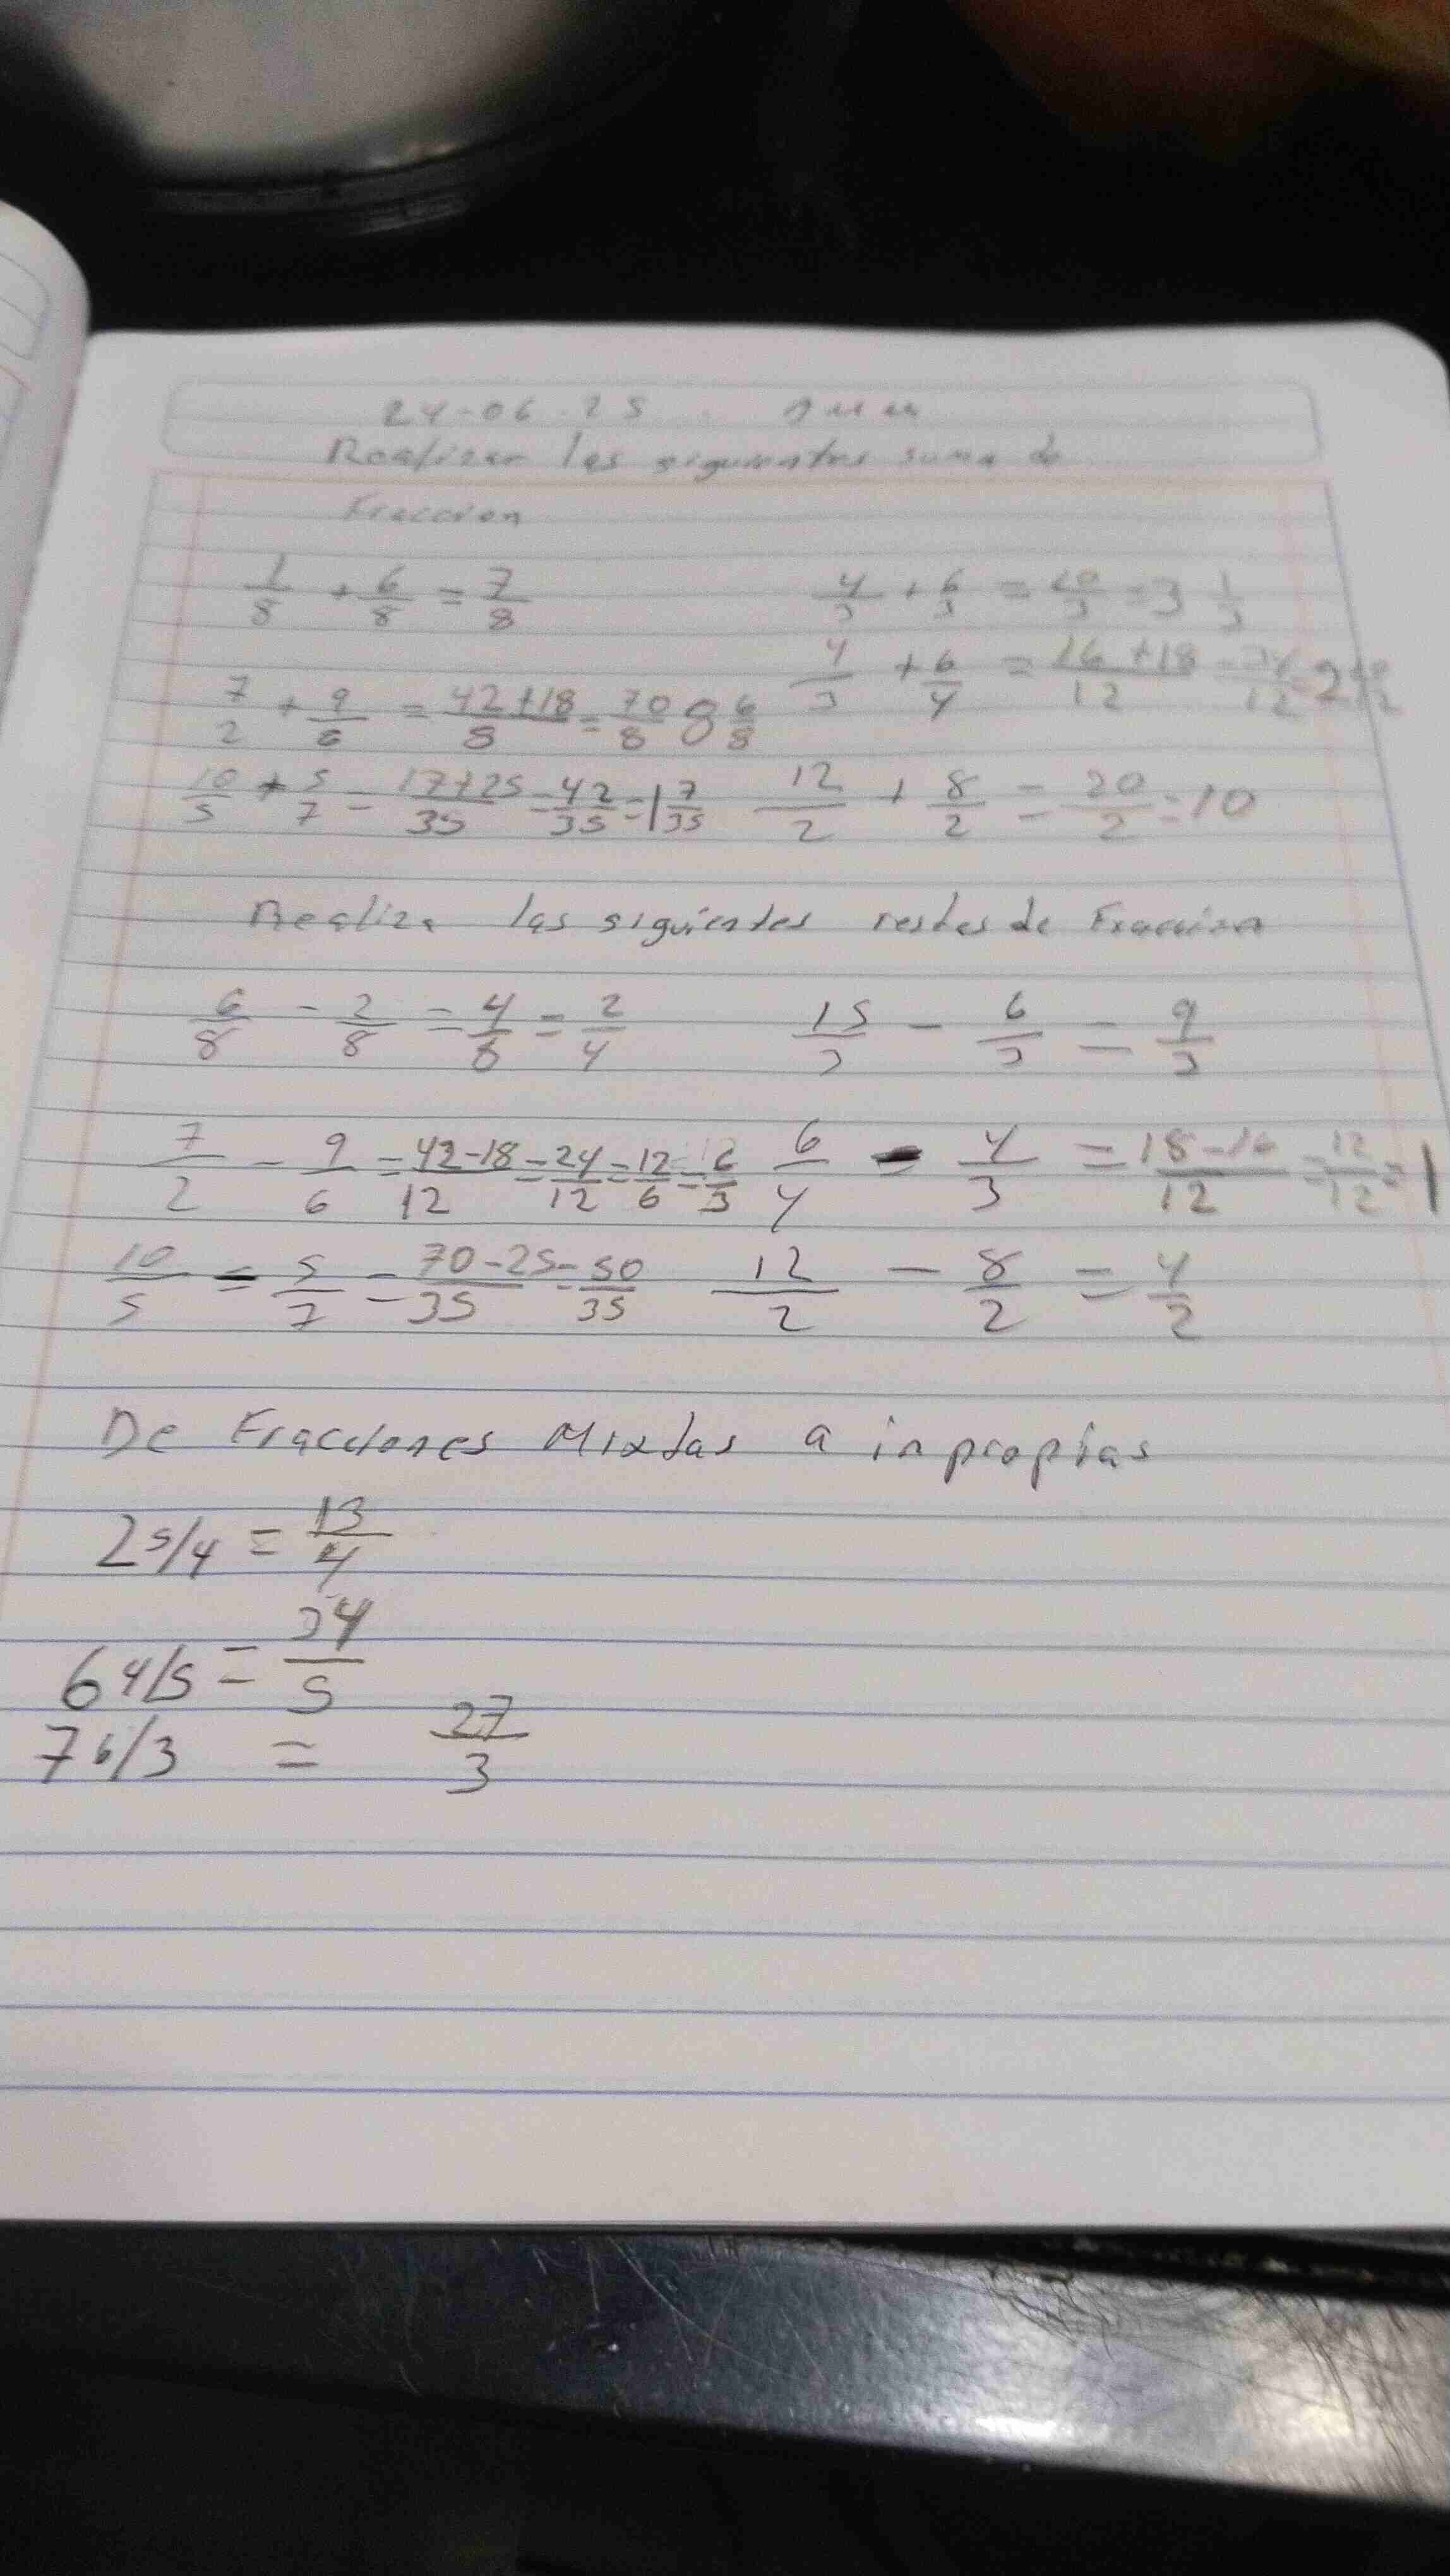 24-06-25
Realizar las siguientes suma de
Fraccion
1/8 + 6/8 = 7/8    4/3 + 6/3 = 10/3 = 3 1/3
4/3 + 6/4 = 16+18/12 = 34/12
7/2 + 9/6 = 42+18/8 = 70/8 8 6/8
10/5 + 5/7 = 17+25/35 = 42/35 = 1 7/35    12/2 + 8/2 = 20/2 = 10
Realiza las siguientes restas de Fraccion
6/8 - 2/8 = 4/8 = 2/4    15/3 - 6/3 = 9/3
7/2 - 9/6 = 42-18/12 = 24/12 = 12/6 = 6/3    6/4 - 4/3 = 18-16/12 = 12/12 = 1
10/5 - 5/7 = 70-25/35 = 50/35    12/2 - 8/2 = 4/2
De Fracciones Mixtas a inpropias
2 5/4 = 13/4
6 4/5 = 34/5
7 6/3 = 27/3